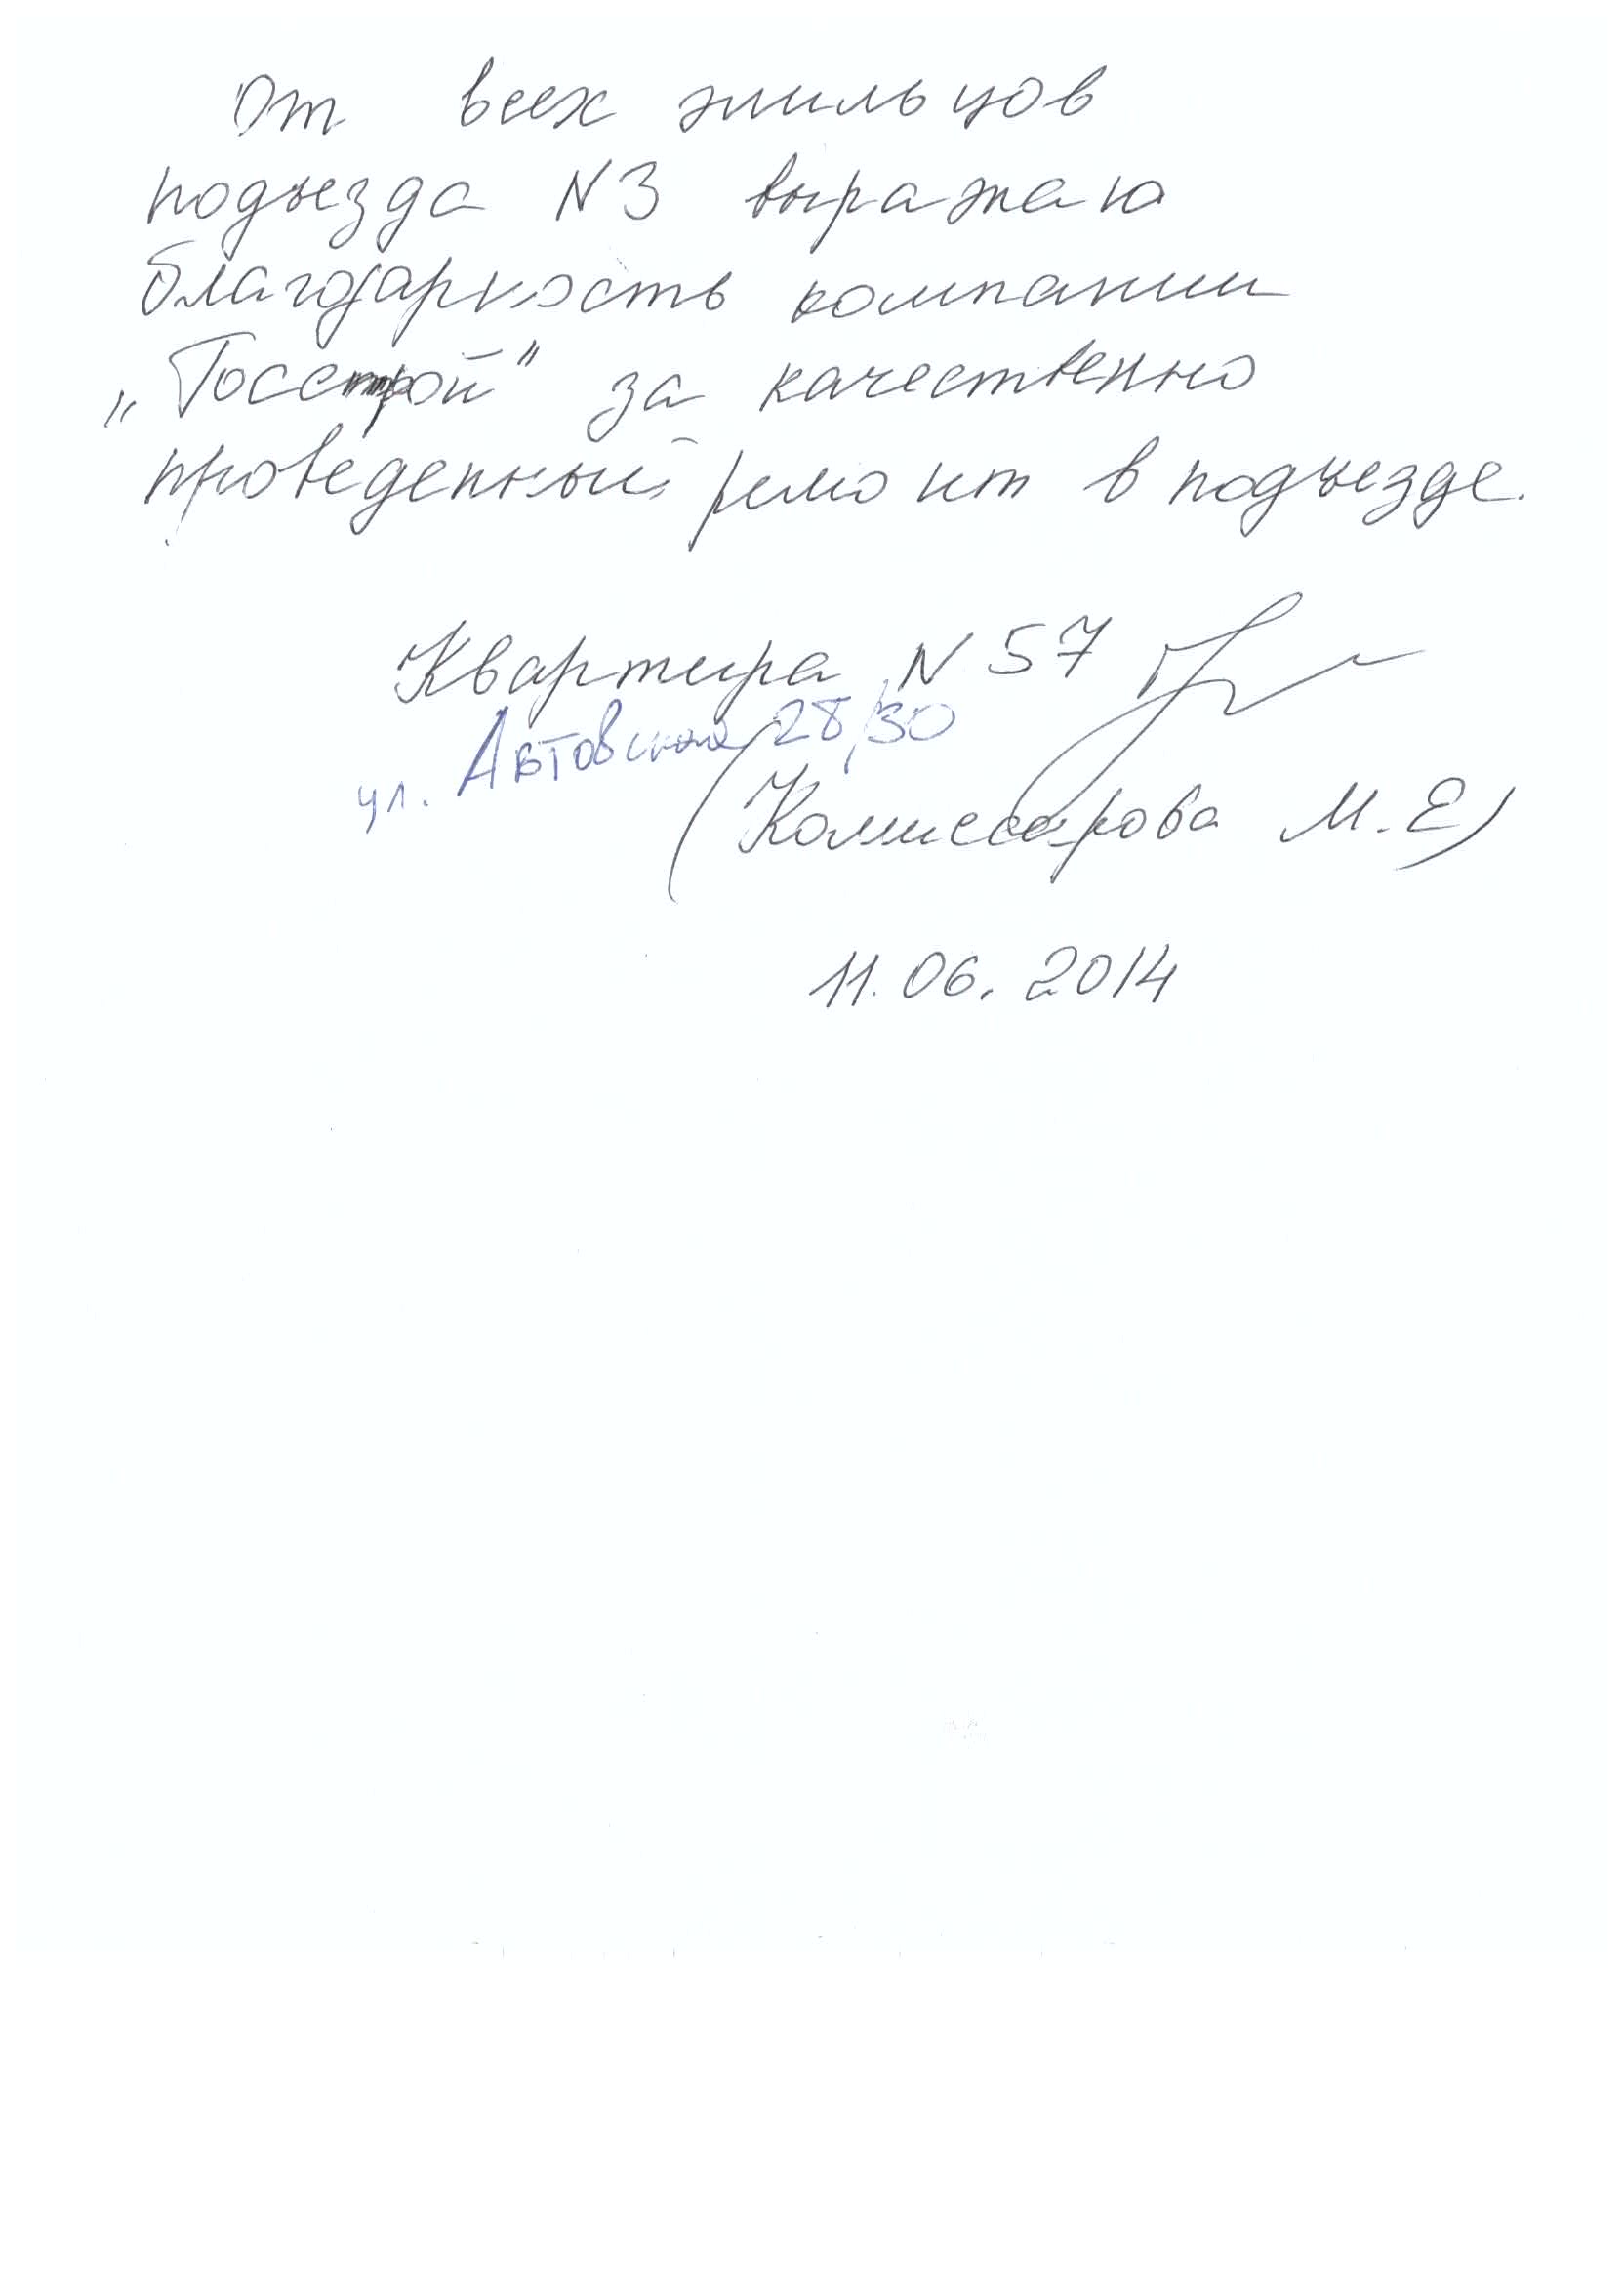 От всех жильцов
подъезда N 3 выражаю
благодарность компании
„Госстрой" за качественно
проведенный ремонт в подъезде.
Квартира N 57
ул. Автовская 28/30
(Комиссарова М.Е)
11.06.2014